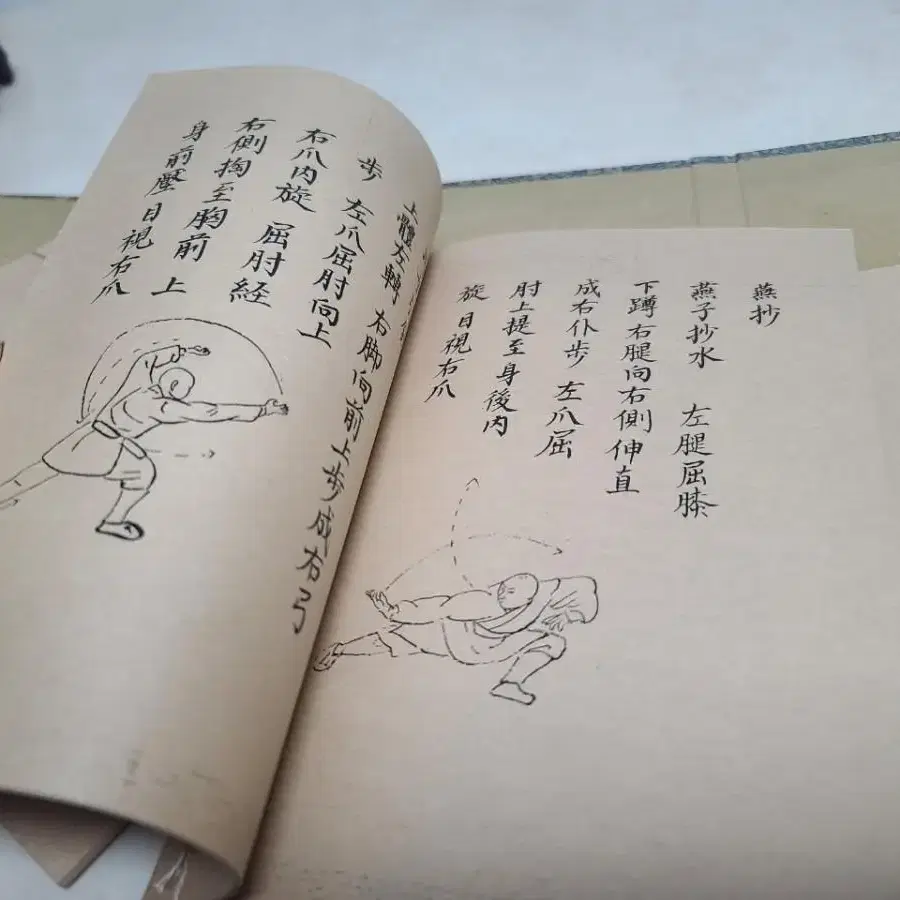 燕抄
燕子抄水 左腿屈膝
下蹲右腿向右側伸直
成右仆步 左爪屈
肘上提至身後内
旋 目視右爪
上體左轉 右脚向前上步成右弓
步 左爪屈肘向上
右爪内旋 屈肘経
右側掏至胸前 上
身前壓 目視右爪